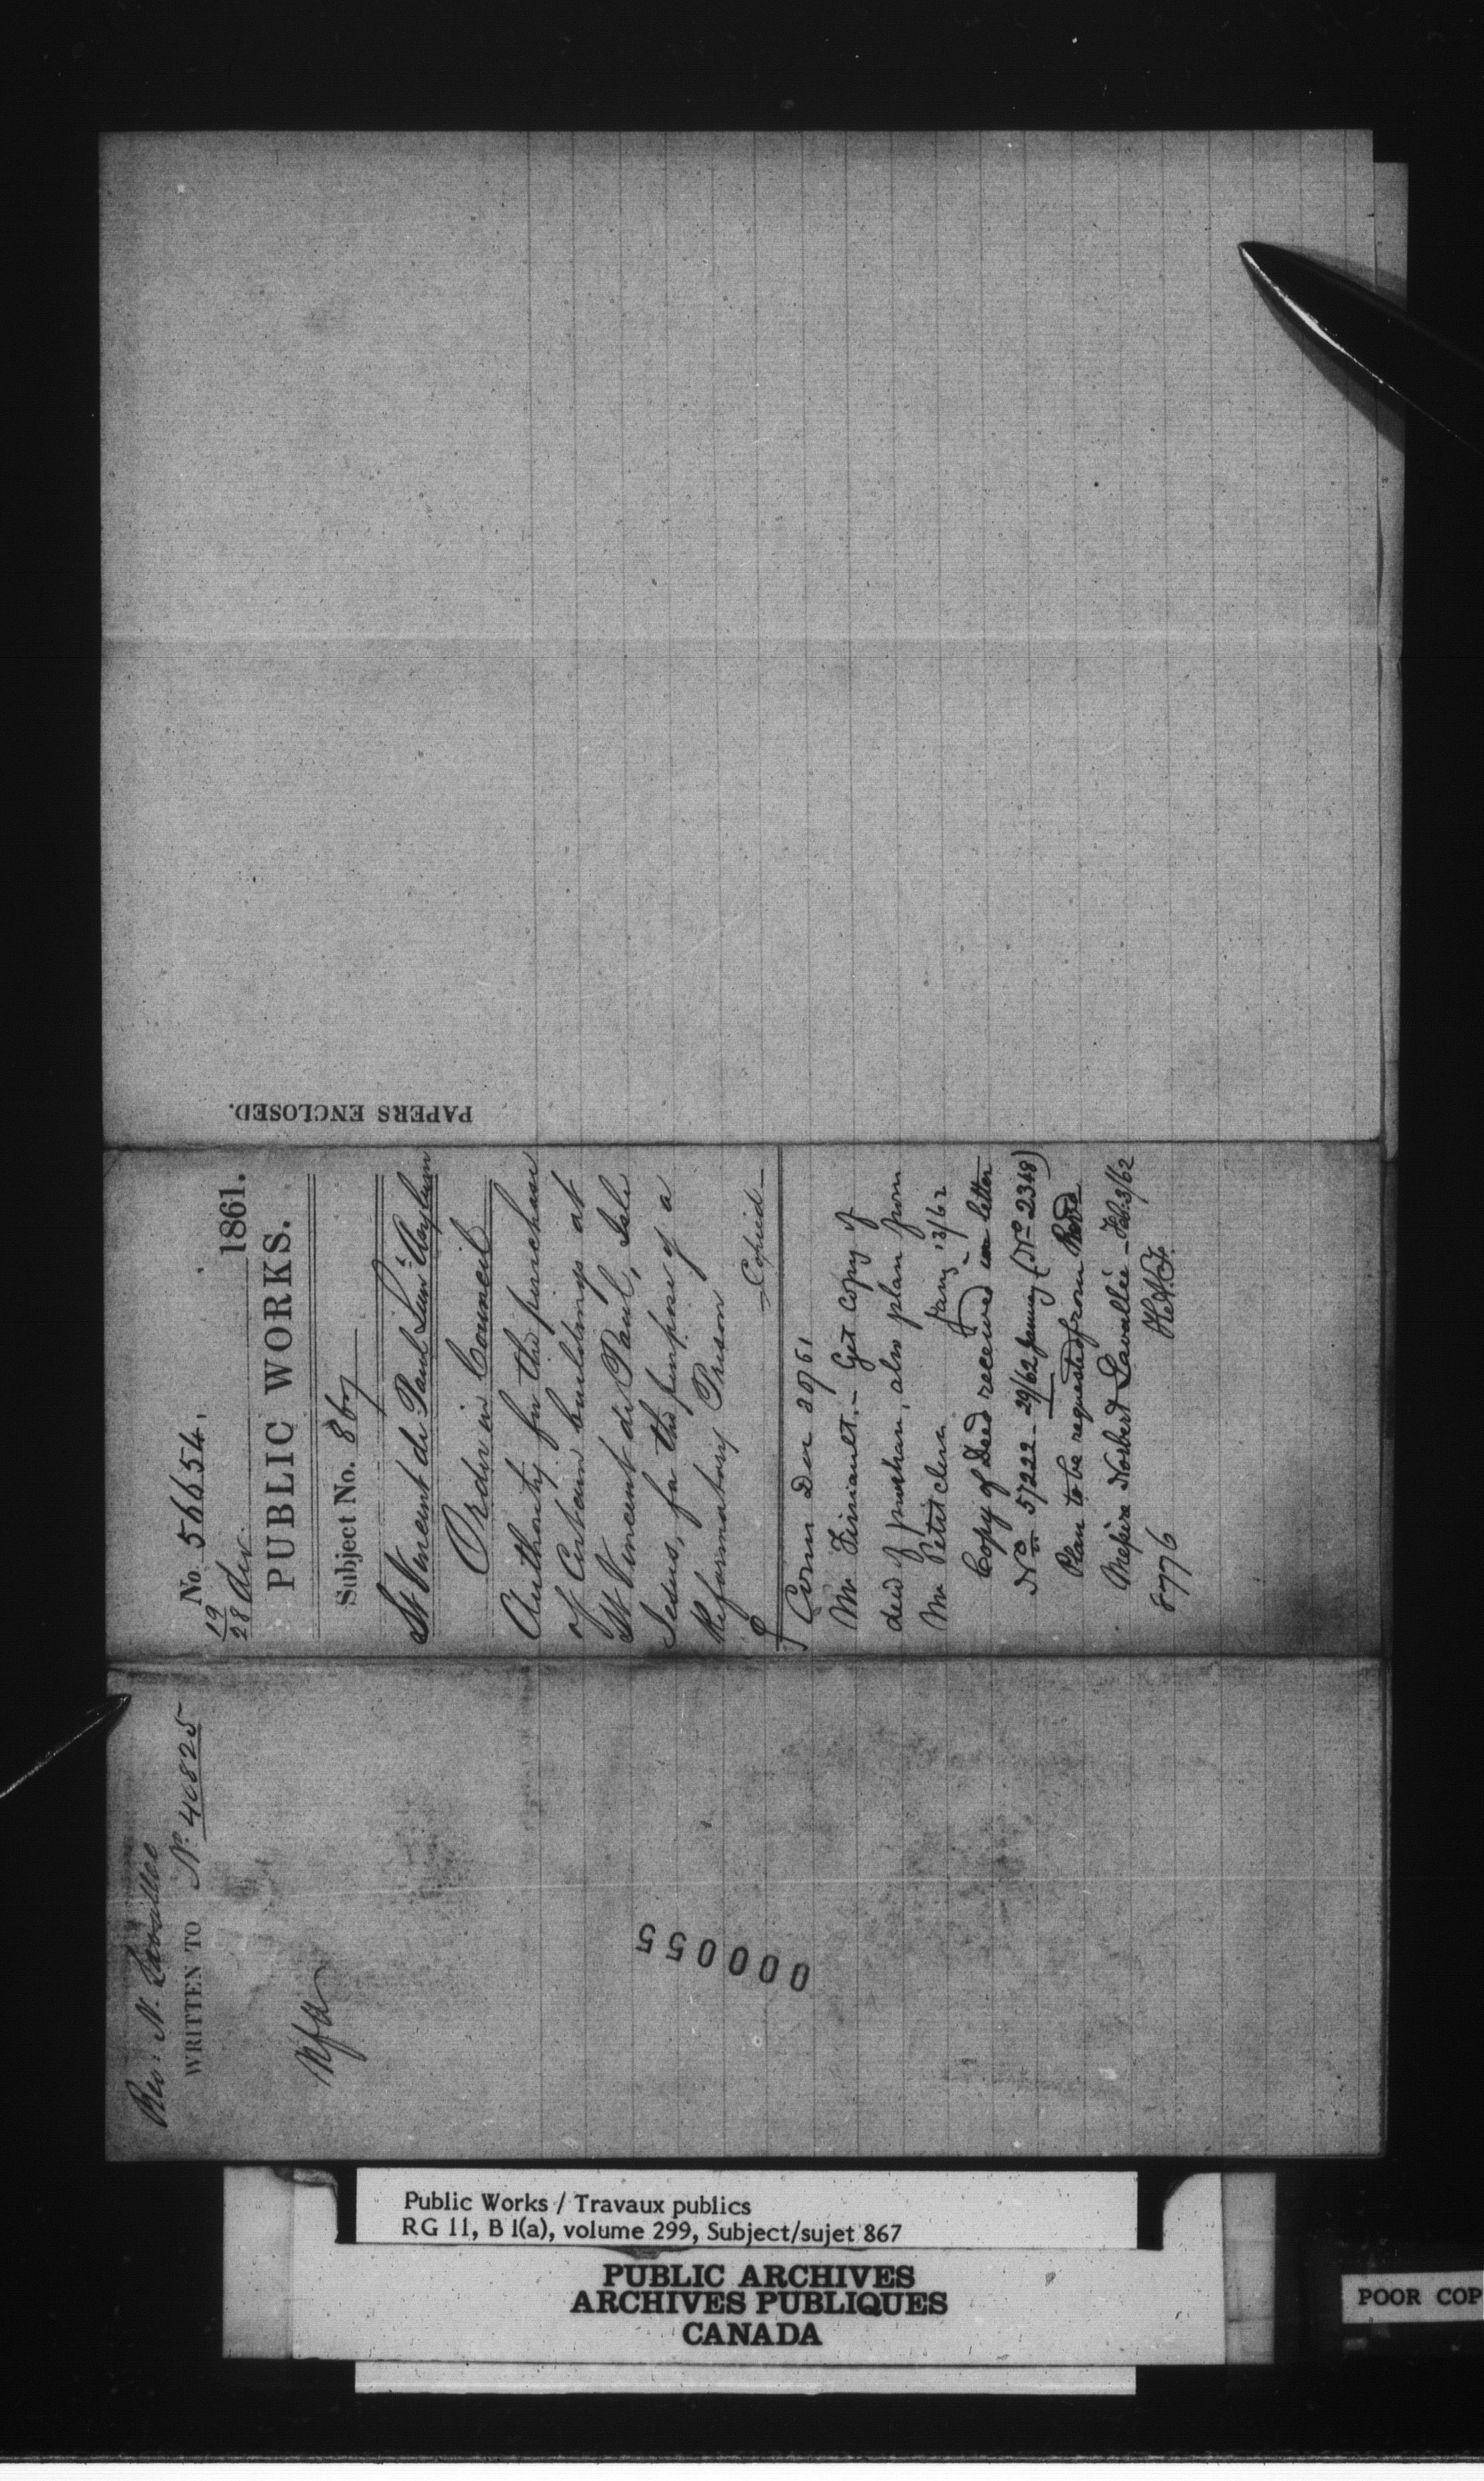 No. 56654.
19
28 Dec. 1861.
PUBLIC WORKS.
Subject No. 867
St Vincent de Paul Lun: Asylum
Order in Council
Authority for the purchase
of Certain buildings at
St Vincent de Paul, Isle
Jesus, for the purpose of a
Reformatory Prison
Copied
Com Dec 20/61
Mr Finiault. Get copy of
deed of purchase, also plan from
Mr Petitclerc Jany 13/62
Copy of Deed received in letter
No 57222 - 29/62 January (No 2348)
Plan to be requested from Revd
Messire Norbert Lavallée - Feb 3/62
8776
PAPERS ENCLOSED.
Rev: N. Lavallee
WRITTEN TO No 40825
000055
Public Works / Travaux publics
RG 11, B 1(a), volume 299, Subject/sujet 867
PUBLIC ARCHIVES
ARCHIVES PUBLIQUES
CANADA
POOR COP